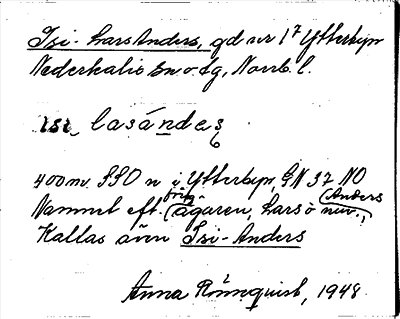 Isi-Lars Anders, gd nr 1⁷ Ytterbyn
Nederkalix sn. o. tg, Norrb. l.
isi lasándeş
400 m. SSO n i Ytterbyn, GN 37 NO
Namnet eft. förr ägaren, Lars o Anders nuv.,
Kallas även Isi-Anders
Anna Rönnquist, 1948.